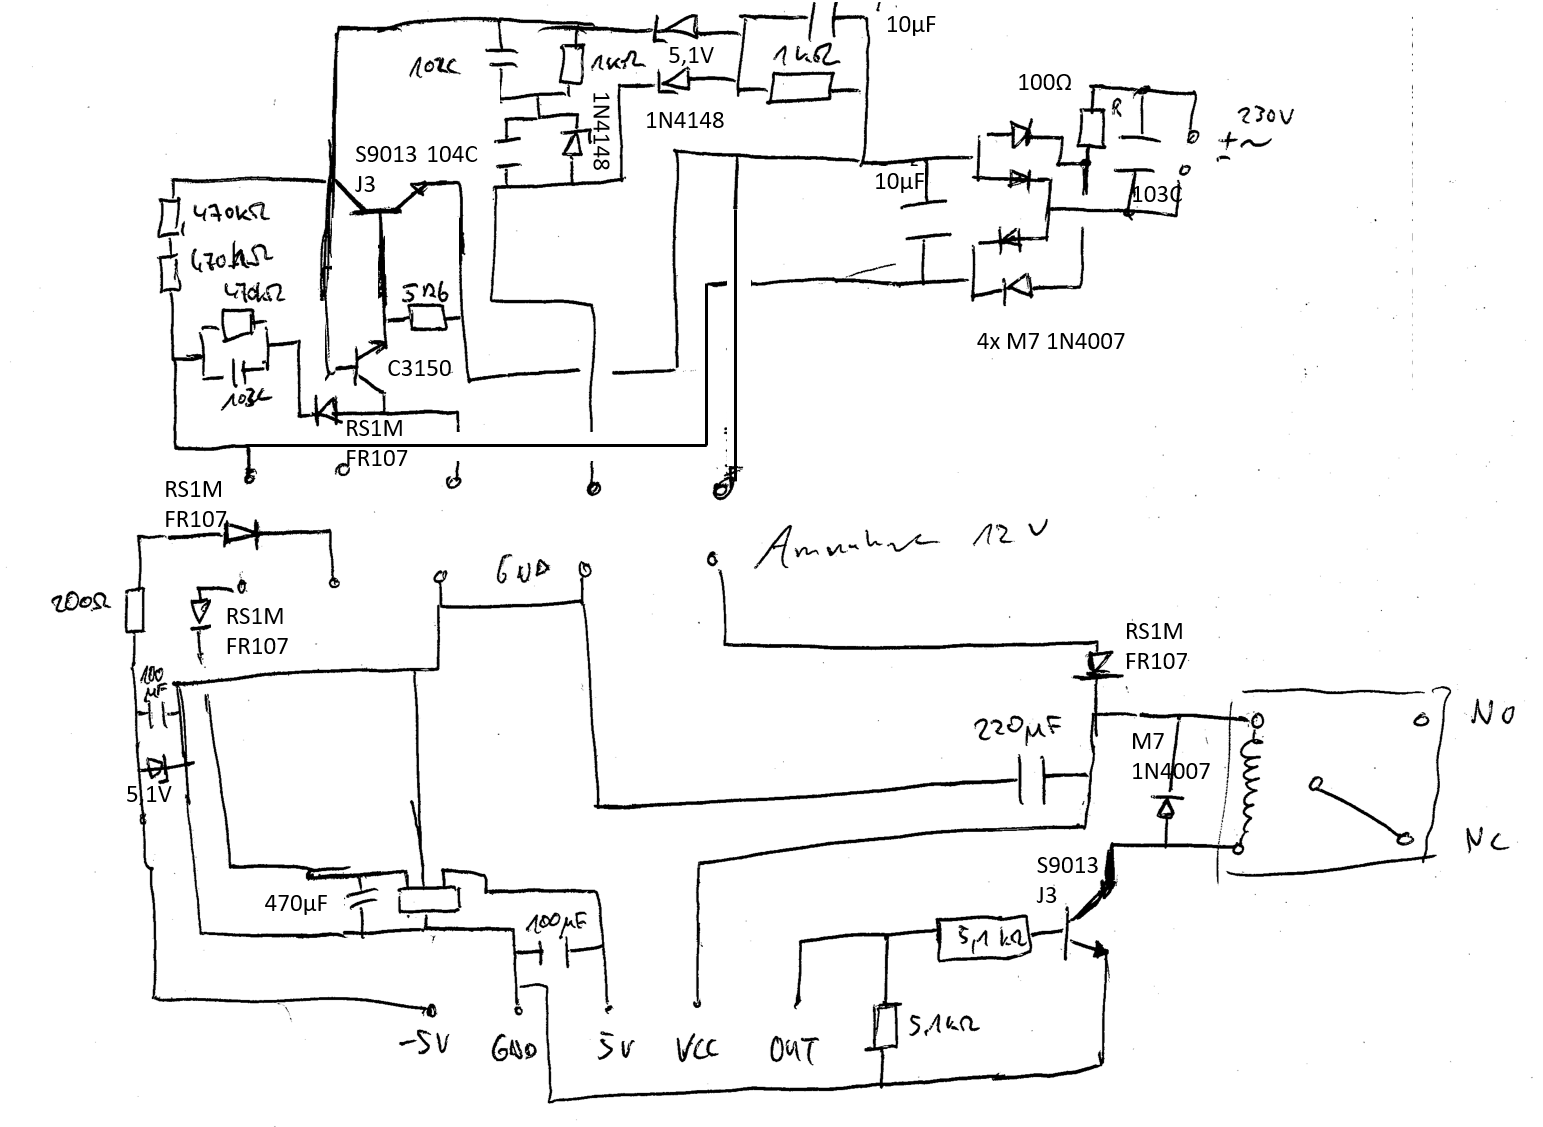 10µF
102C
1kΩ
5,1V
1kΩ
1N4148
1N4148
100Ω
R
230V
± ~
S9013 104C
J3
10µF
103C
470kΩ
470kΩ
470kΩ
5Ω6
4x M7 1N4007
C3150
103C
RS1M
FR107
RS1M
FR107
12 V
GND
200Ω
RS1M
FR107
RS1M
FR107
100
µF
220µF
NO
M7
1N4007
5,1V
NC
S9013
J3
470µF
100µF
5,1kΩ
5,1kΩ
-5V
GND
5V
VCC
OUT